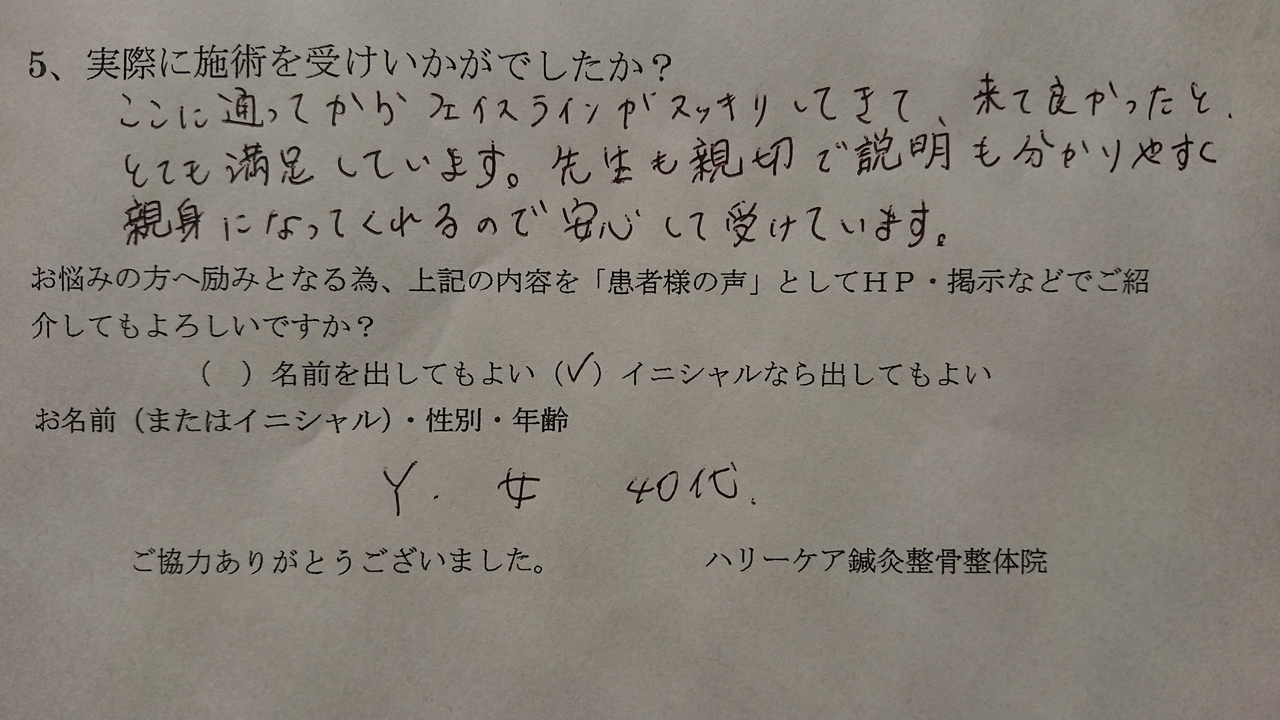 5、実際に施術を受けいかがでしたか？
ここに通ってから フェイスラインが スッキリしてきて、来て良かったと、
とても満足しています。先生も親切で説明も分かりやすく
親身になってくれるので安心して受けています。
お悩みの方へ励みとなる為、上記の内容を「患者様の声」としてＨＰ・掲示などでご紹
介してもよろしいですか？
（　）名前を出してもよい（✓）イニシャルなら出してもよい
お名前（またはイニシャル）・性別・年齢
Y. 女 40代.
ご協力ありがとうございました。 ハリーケア鍼灸整骨整体院